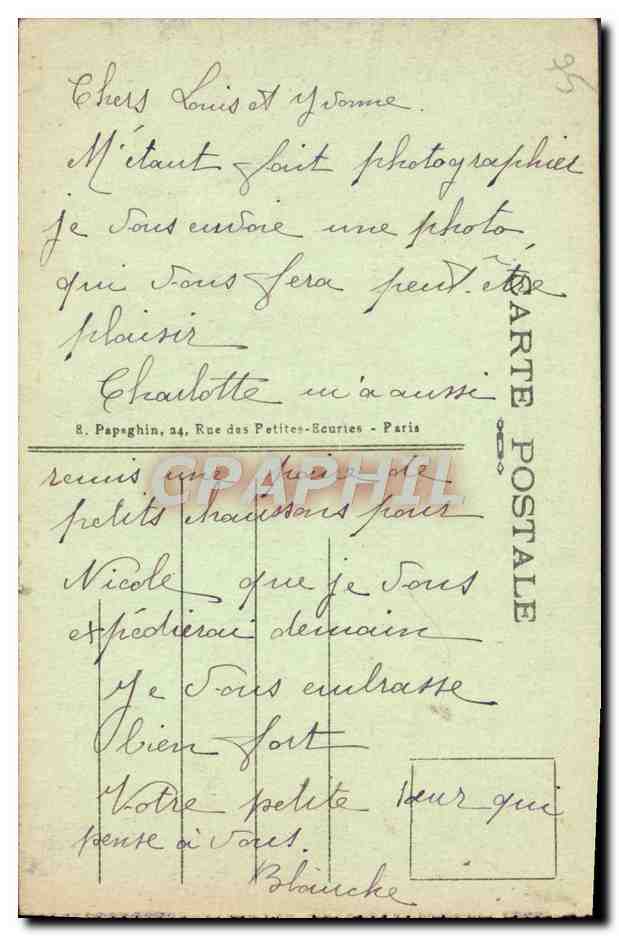 95
Chers Louis et Yvonne.
M'étant fait photographier
je vous envoie une photo
qui vous fera peut.être
plaisir
Charlotte m'a aussi
8. Papeghin, 24, Rue des Petites-Ecuries - Paris
remis une paire de
petits chaussons pour
Nicole que je vous
expédierai demain
Je vous embrasse
bien fort
Votre petite sœur qui
pense à vous.
Blanche
CARTE POSTALE
CPAPHIL